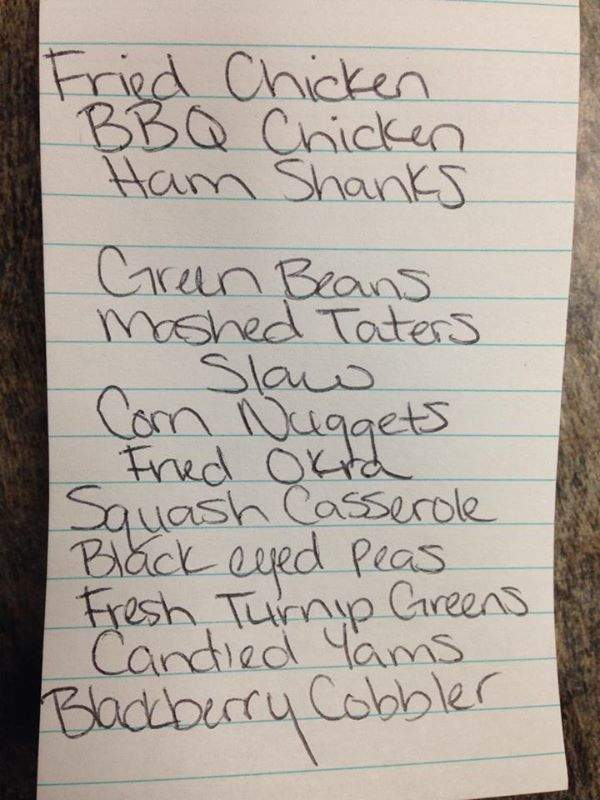 Fried Chicken
BBQ Chicken
Ham Shanks
Green Beans
Mashed Taters
Slaw
Corn Nuggets
Fried Okra
Squash Casserole
Black eyed Peas
Fresh Turnip Greens
Candied Yams
Blackberry Cobbler